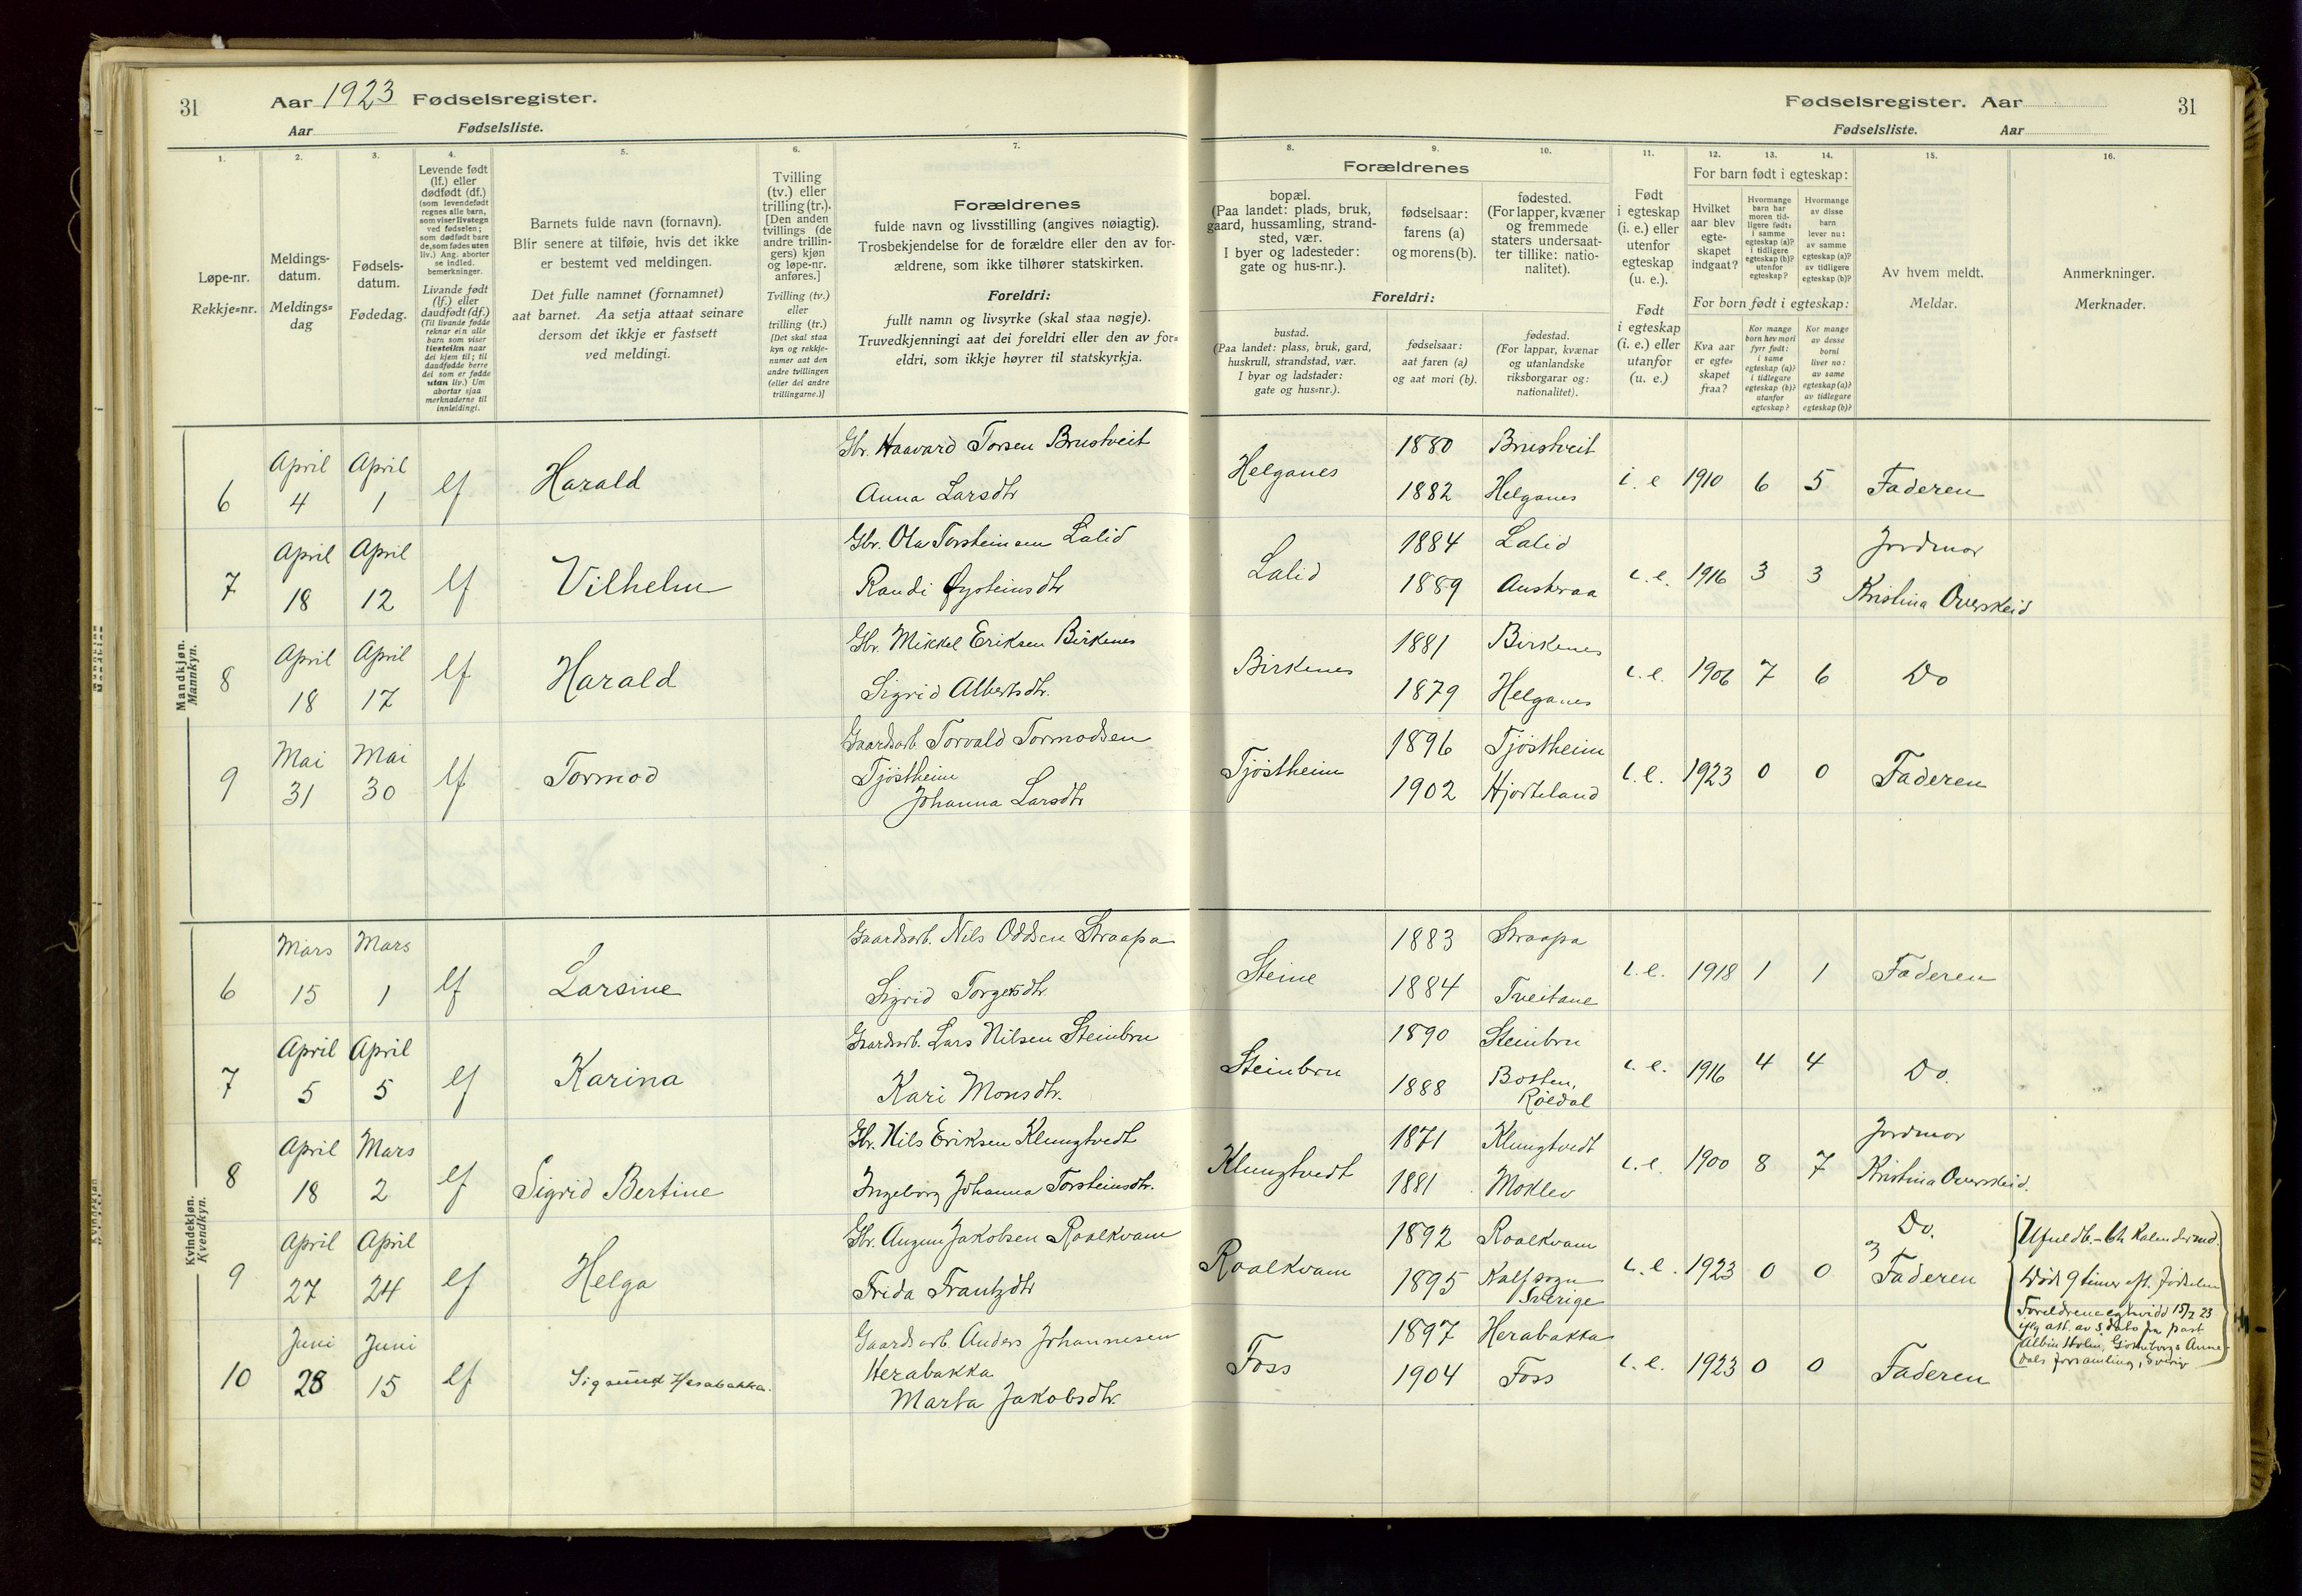 31
Aar 1923 Fødselsregister.
Aar Fødselsliste.
1.
Løpe-nr.
Rekkje=nr.
2.
Meldings-
datum.
Meldings=
dag
3.
Fødsels-
datum.
Fødedag.
4.
Levende født
(lf.) eller
dødfødt (df.)
(som levendefødt
regnes alle barn,
som viser livstegn
ved fødselen;
som dødfødt bare
de, som fødes uten
liv.) Ang. aborter
se indled.
bemerkninger.
Livande født
(lf.) eller
daudfødt (df.)
(Til livande fødde
reknar ein alle
barn som viser
livsteikn naar
dei kjem til; til
daudfødde berre
dei som er fødde
utan liv.) Um
abortar sjaa
merknaderne til
innleidingi.
5.
Barnets fulde navn (fornavn).
Blir senere at tilføie, hvis det ikke
er bestemt ved meldingen.
Det fulle namnet (fornamnet)
aat barnet. Aa setja attaat seinare
dersom det ikkje er fastsett
ved meldingi.
6.
Tvilling
(tv.) eller
trilling (tr.).
[Den anden
tvillings (de
andre trillin-
gers) kjøn
og løpe-nr.
anføres.]
Tvilling (tv.)
eller
trilling (tr.)
[Det skal staa
kyn og rekkje-
numer aat den
andre tvillingen
(eller dei andre
trillingarne.)]
7.
Forældrenes
fulde navn og livsstilling (angives nøiagtig).
Trosbekjendelse for de forældre eller den av for-
ældrene, som ikke tilhører statskirken.
Foreldri:
fullt namn og livsyrke (skal staa nøgje).
Truvedkjenningi aat dei foreldri eller den av for=
eldri, som ikkje høyrer til statskyrkja.
Fødselsregister. Aar
31
Fødselsliste. Aar
Forældrenes
8.
bopæl.
(Paa landet: plads, bruk,
gaard, hussamling, strand-
sted, vær.
I byer og ladesteder:
gate og hus-nr.).
9.
fødselsaar:
farens (a)
og morens (b).
10.
fødested.
(For lapper, kvæner
og fremmede
staters undersaat-
ter tillike: natio-
nalitet).
Foreldri:
bustad.
(Paa landet: plass, bruk, gard,
huskrull, strandstad, vær.
I byar og ladstader:
gate og hus=nr.).
fødselsaar:
aat faren (a)
og aat mori (b).
fødestad.
(For lappar, kvænar
og utanlandske
riksborgarar og:
nationalitet).
11.
Født
i egteskap
(i. e.) eller
utenfor
egteskap
(u. e.).
Født
i egteskap
(i. e.) eller
utanfor
(u. e.)
12. 13. 14.
For barn født i egteskap:
Hvilket
aar blev
egte-
skapet
indgaat?
Hvormange
barn har
moren tid-
ligere født:
i samme
egteskap (a)?
i tidligere
egteskap (b)?
utenfor
egteskap?
Hvormange
av disse
barn
lever nu:
av samme
egteskap (a)?
av tidligere
egteskap (b)?
For born født i egteskap:
Kva aar
er egte=
skapet
fraa?
Kor mange
born hev mori
fyrr født:
i same
egteskap (a)?
i tidlegare
egteskap (b)?
utanfor
egteskap?
Kor mange
av desse
borni
liver no:
av same
egteskap (a)?
av tidlegare
egteskap (b)?
15.
Av hvem meldt.
Meldar.
16.
Anmerkninger.
Merknader.
Mandkjøn.
Mannkyn.
6 April 4 April 1 lf Harald Gbr. Haavard Torsen Brustveit Helganes 1880 Brustveit i. e 1910 6 5 Faderen
Anna Larsdtr 1882 Helganes
7 April 18 April 12 lf Vilhelm Gbr. Ola Torsteinsen Lalid Lalid 1884 Lalid i. e. 1916 3 3 Jordmor
Randi Øysteinsdtr 1889 Austraa Kristina Overskeid
8 April 18 April 17 lf Harald Gbr. Mikkel Eriksen Birkenes Birkenes 1881 Birkenes i. e. 1906 7 6 Do
Sigrid Albertsdtr. 1879 Helganes
9 Mai 31 Mai 30 lf Tormod Gaardsarb. Torvald Tormodsen Tjøstheim 1896 Tjøstheim i. e. 1923 0 0 Faderen
Tjøstheim
Johanna Larsdtr 1902 Hjorteland
Kvindekjøn.
Kvendkyn.
6 Mars 15 Mars 1 lf Larsine Gaardsarb. Nils Oddsen Straapa Steine 1883 Straapa i. e. 1918 1 1 Faderen
Sigrid Torgersdtr. 1884 Tveitane
7 April 5 April 5 lf Karina Gaardsarb. Lars Nilsen Steinbru Steinbru 1890 Steinbru i. e. 1916 4 4 Do.
Kari Monsdtr. 1888 Botten, Røldal
8 April 18 Mars 2 lf Sigrid Bertine Gbr. Nils Eriksen Klungtvedt Klungtvedt 1871 Klungtvedt i. e. 1900 8 7 Jordmor
Ingeborg Johanna Torsteinsdtr. 1881 Moklev Kristina Overskeid.
9 April 27 April 24 lf Helga Gbr. Augun Jakobsen Roalkvam Roalkvam 1892 Roalkvam i. e. 1923 0 0 Do.
Frida Frantzdtr 1895 Kalfsogn Sverige 3 Faderen
Ufuldb. - 6te Kalendermd.
Død 9 timer eft. fødselen
Foreldrene egtevidd 15/2 23
iflg att. av s. dato fra past
Albin Holm, Göteborgs Anne-
dals forsamling, Sverig
10 Juni 28 Juni 15 lf Sigmund Herabakka. Gaardsarb. Anders Johannesen Foss 1897 Herabakka i. e. 1923 0 0 Faderen
Herabakka
Marta Jakobsdtr. 1904 Foss